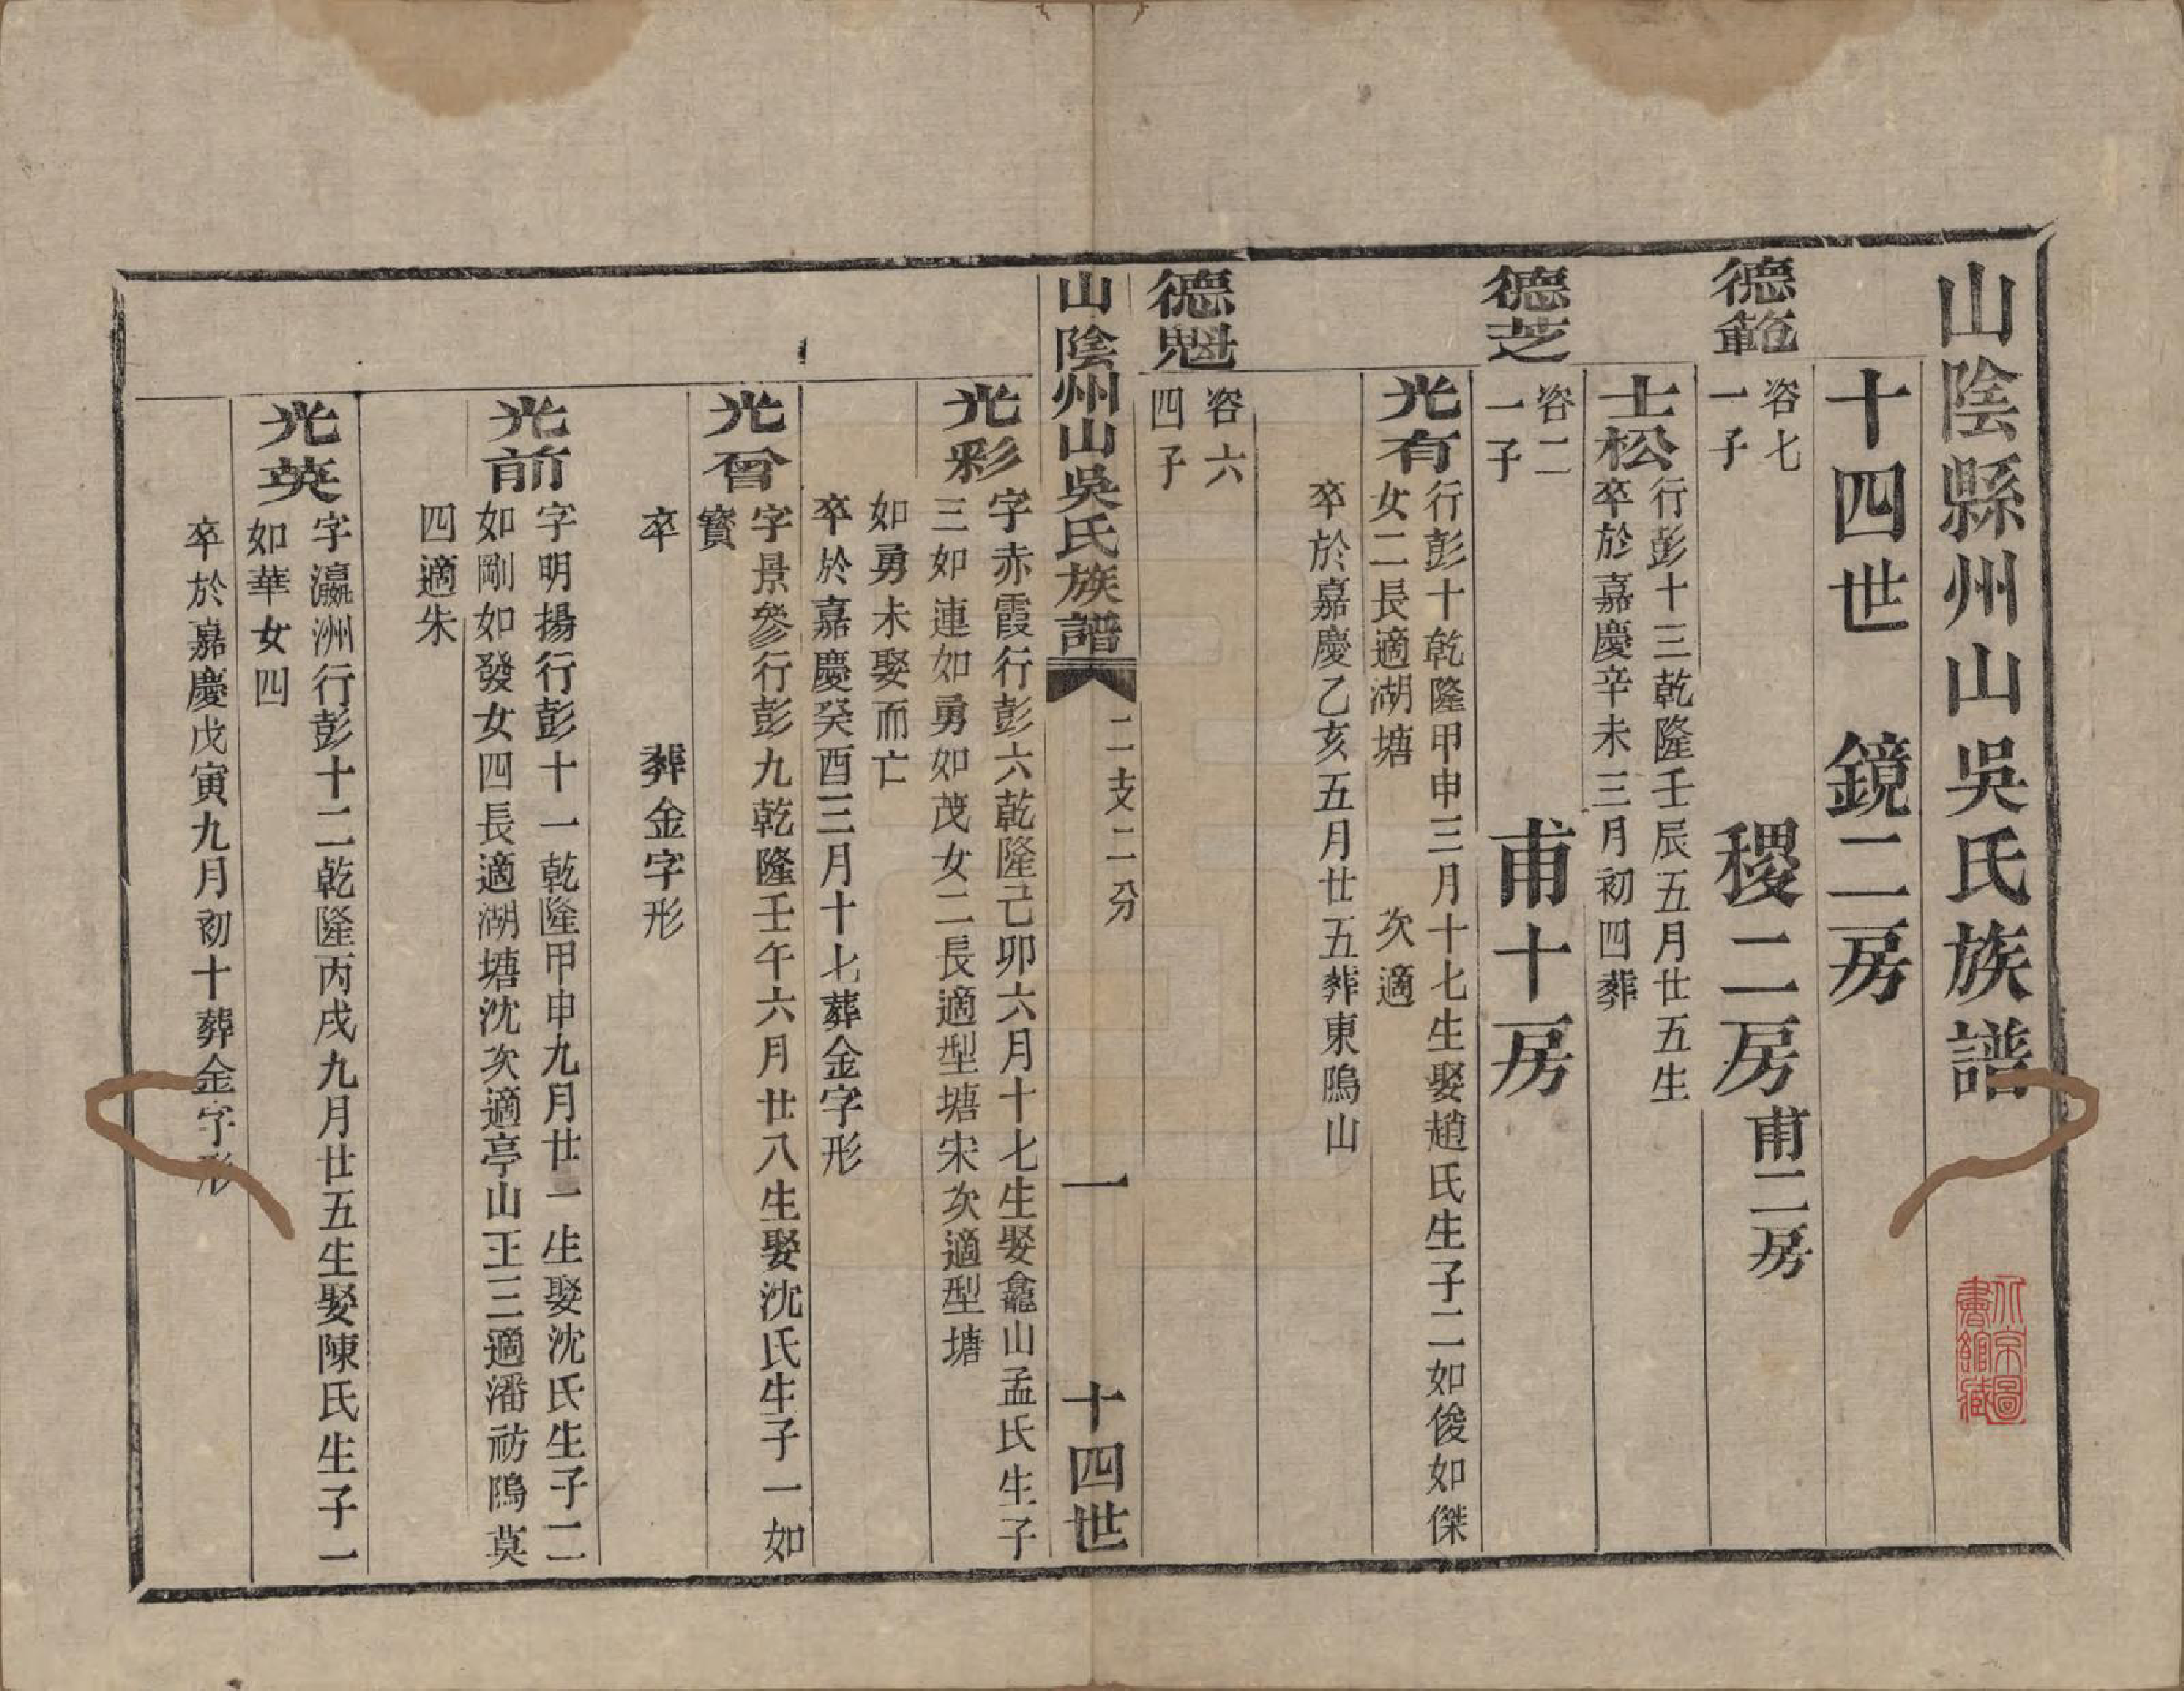 山陰縣州山吳氏族譜
十四世　鏡二房
德範　容七　一子　稷二房甫二房
士松　行彭十三乾隆壬辰五月廿五生
卒於嘉慶辛未三月初四葬
德芝　容二　一子　甫十房
光有　行彭十乾隆甲申三月十七生娶趙氏生子二如俊如傑
女二長適湖塘　次適
卒於嘉慶乙亥五月廿五葬東隝山
德魁　容六　四子
山陰州山吳氏族譜　二支二分　一　十四世
光彩　字赤霞行彭六乾隆己卯六月十七生娶龕山孟氏生子
三如連如勇如茂女二長適型塘宋次適型塘
如勇未娶而亡
卒於嘉慶癸酉三月十七葬金字形
光曾　字景參行彭九乾隆壬午六月廿八生娶沈氏生子一如
寶
卒　葬金字形
光前　字明揚行彭十一乾隆甲申九月廿一生娶沈氏生子二
如剛如發女四長適湖塘沈次適亭山王三適潘祊隝莫
四適朱
光英　字瀛洲行彭十二乾隆丙戌九月廿五生娶陳氏生子一
如華女四
卒於嘉慶戊寅九月初十葬金字形